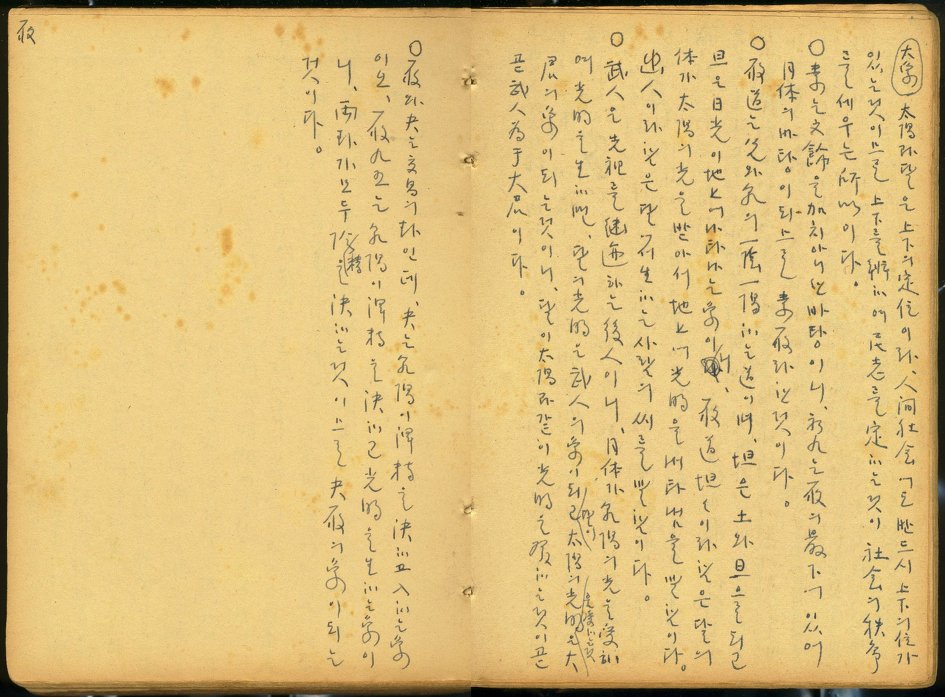 大象 太陽과달은 上下의定位이라, 人间社会에도 반드시 上下의位가
있는것이므로 上下를辨하여 民志를定하는것이 社会의秩序
를세우는所以이다。
○素는文飾을加치아니한바탕이니, 初九는履의最下에있어
月体의바탕이되므로 素履라한것이다。
○履道는兌와乾의一陰一陽하는道이며, 坦은土와旦으로되고
旦은日光이地上에나타나는象이니, 履道坦坦이라함은달의
体가太陽의光을받아서地上에光明을나타냄을말함이다。
幽人이라함은달에서生하는사람의씨를말함이다。
○武人은先祖를継述하는後人이니, 月体가乾陽의光을受하
여光明을生하면, 달의光明은武人의象이되고太陽의光明은大
君의象이되는것이니, 달이太陽과같이光明을履하는것이곧
武人為于大君이다。
履
○履와夬는交易의卦인데, 夬는乾陽이 을決하고入하는象
이오, 履九五는乾陽이 을決하고光明을生하는象이
니, 両卦가모두陰 을決하는것이므로夬履의象이되는
것이다。